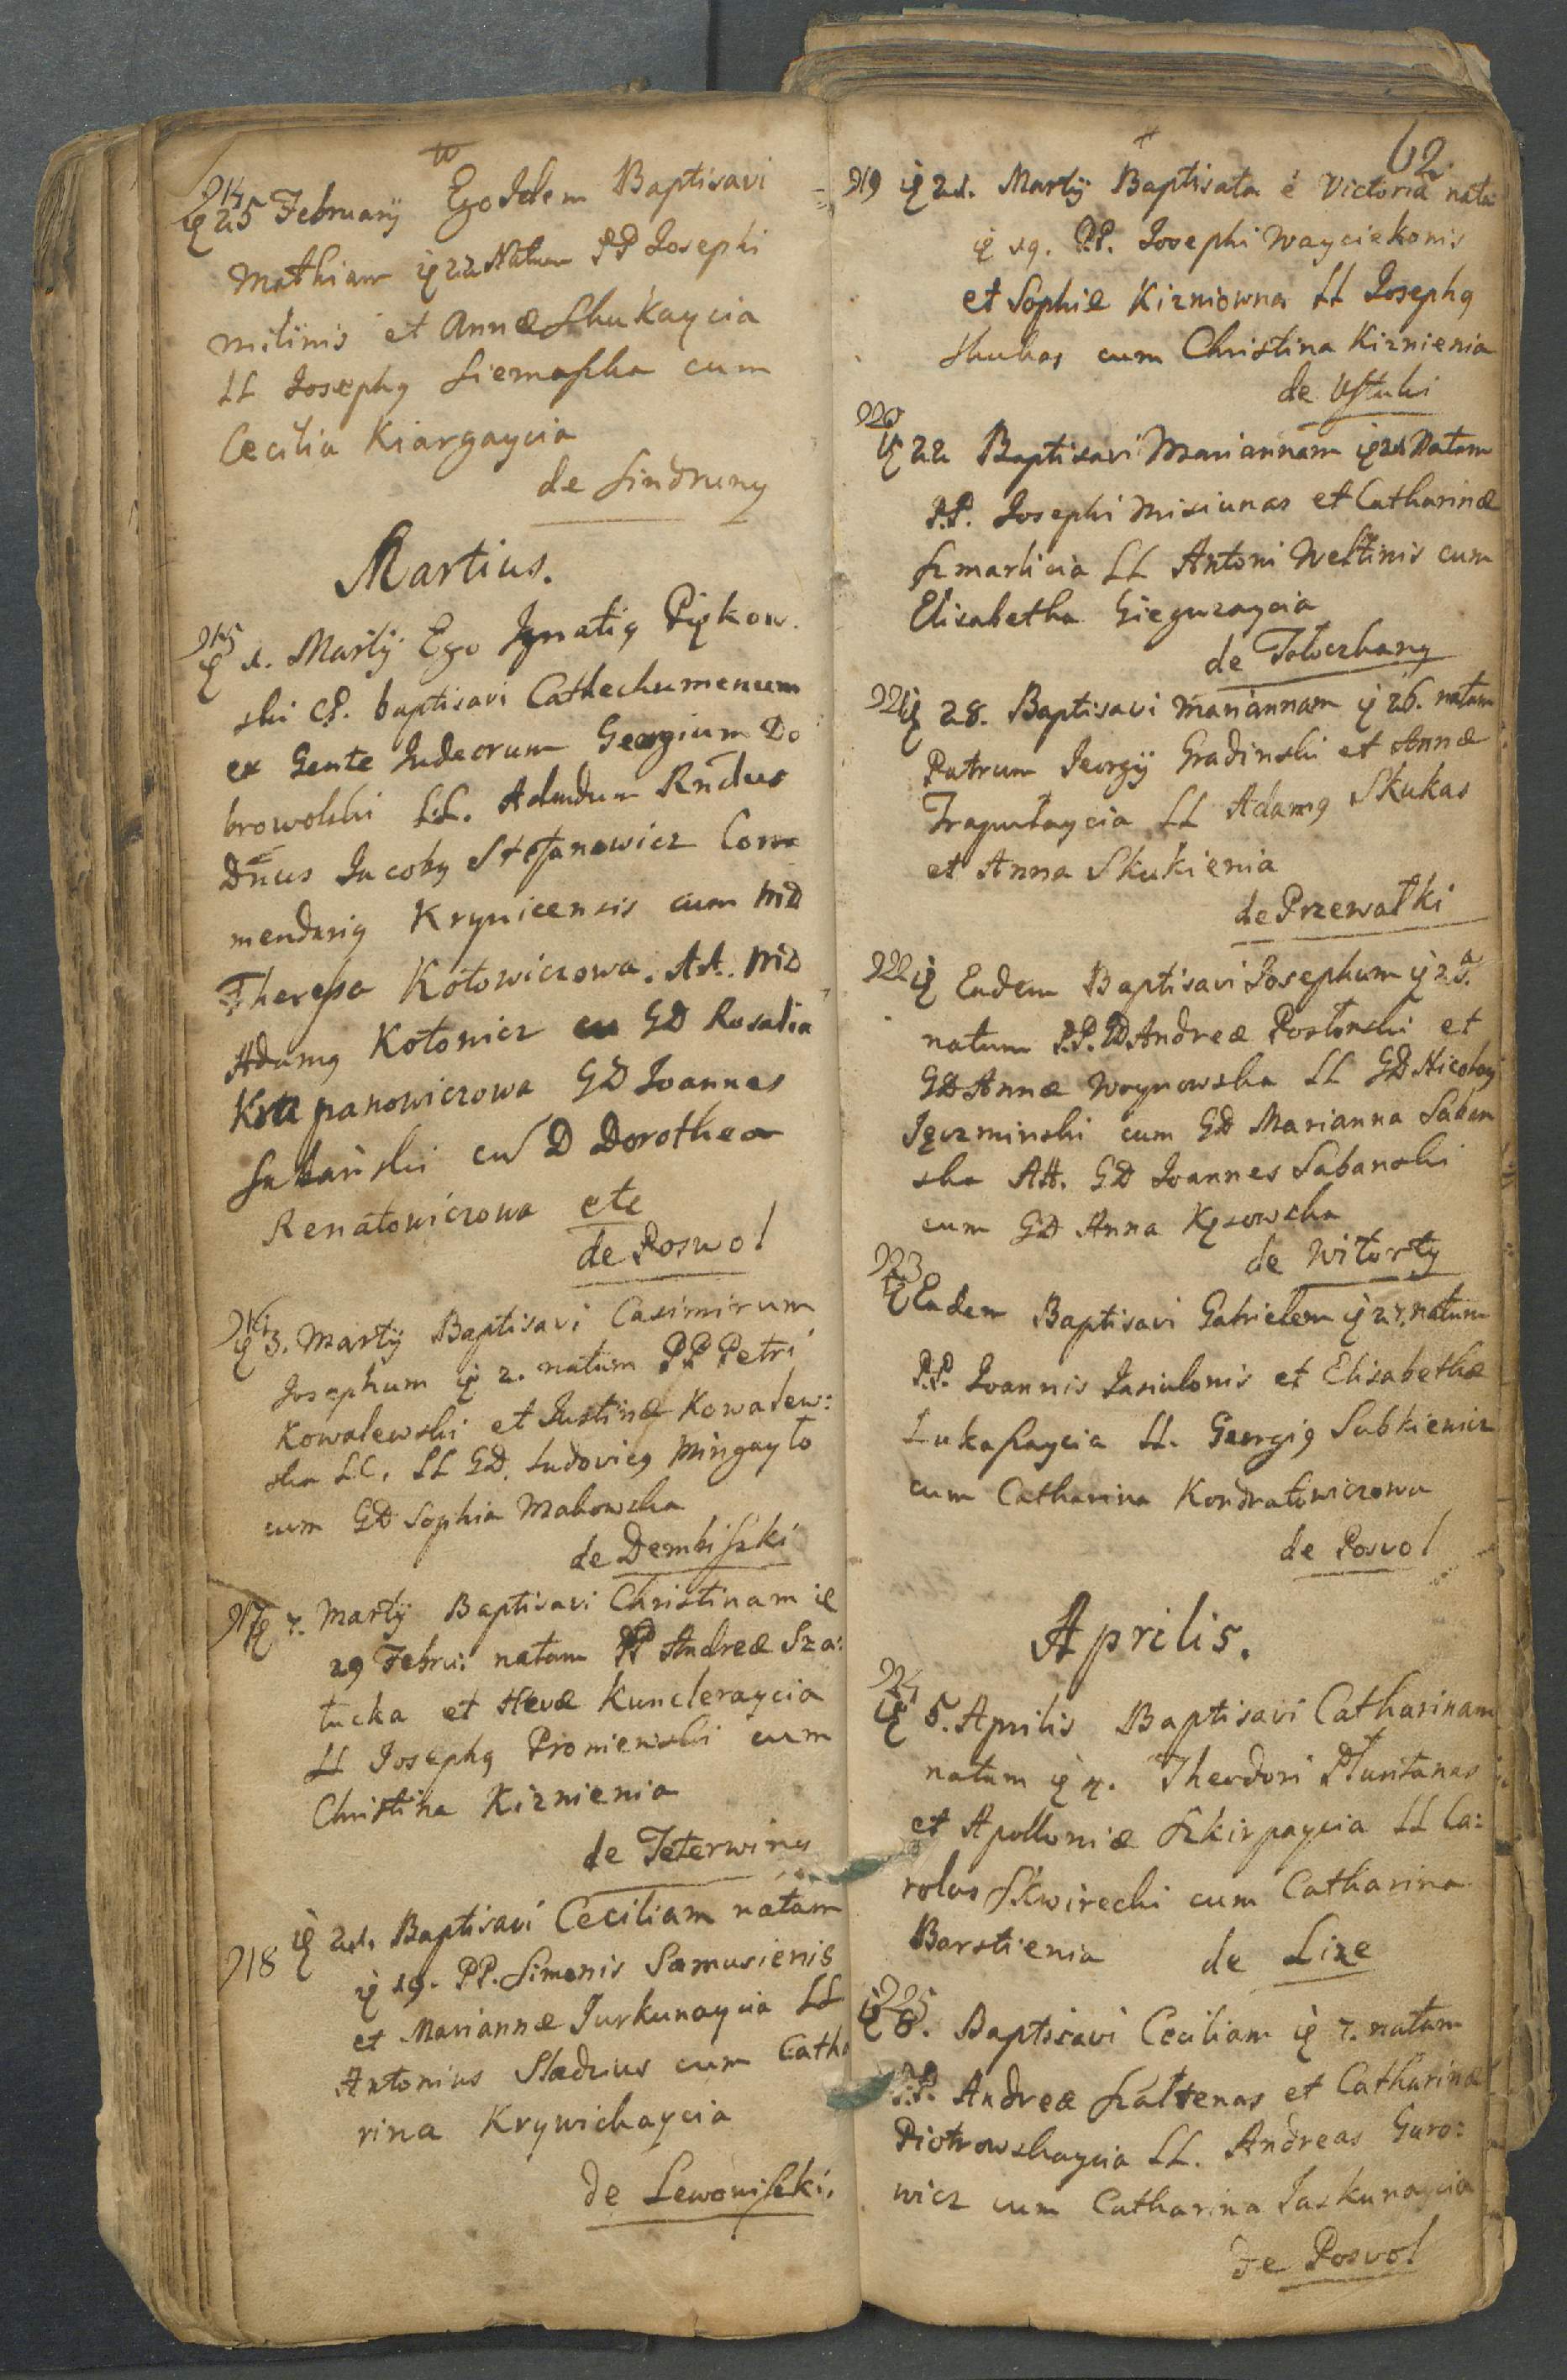 914
25 February Ego Idem Baptisavi
Mathiam 22 Natum PP Josephi
milinis et Annæ Skukaycia
LL Joseph9 Siemaszka cum
Cecilia Kiargaycia
de Sindruny
Martius.
915
1. Martij Ego Ignati9
ski baptisavi Cathechumenum
ex Gente Judeorum Georgium Do
browolski LL. Rndus
Dnus Jacob9 Stefanowicz Com
mendari9 Krynicensis cum MD
Theresa Kotowiczowa. AA. MD
Adam9 Kotowicz cu GD Rosalia
Krzpanowiczowa GD Joannes
cu D Dorothea
Renatowiczowa etc
de Poswol
916
3. Martij Baptisavi Casimirum
Josephum 2. natum PP Petri
Kowalewski et Justinæ Kowalew:
ska LC. LL GD. Ludovic9 Mingayło
cum GD Sophia Makowska
de Dembiszki
917
7. Martij Baptisavi Christinam
29 Febru: natam PP Andreæ Sza:
tucka et Hevæ Kuncleraycia
LL Joseph9 Proniewski cum
Christina Kiznienia
de Teterwiny
918
21. Baptisavi Ceciliam natam
19. PP. Simonis Samusienis
et Mariannæ Jurkunaycia LL
Antonius Sladzius cum Catha
rina Krywickaycia
de Lewoniszki.
62
919 21. Martij Baptisata e Victoria nata
19. P.P. Josephi Wayciekonis
et Sophiæ Kizniowna LL Joseph9
Skukas cum Christina Kiznienia
de Ustuki
920
22 Baptisavi Mariannam 21 Natam
P.P. Josephi Misiunas et Catharinæ
Szmarlicia LL Antoni Weltinis cum
Elisabetha Gieguzaycia
de Tołoczkany
921 28. Baptisavi Mariannam 26. natam
Patrum Jeorgij Gradinski et Annæ
Trapułaycia LL Adam9 Skukas
et Anna Skukienia
de Przewałki
922 Eadem Baptisavi Josephum 25.
natum P.P. GD Andreæ Posłonski et
GD Annæ Woynowska LL GD Nicolay
Jęczminski cum GD Marianna Saban
ska AA. GD Joannes Sabanski
cum GD Anna Kęsowska
de Witorty
923
Eadem Baptisavi Gabrielem 27. natum
P.P. Joannis Jasiulonis et Elisabethæ
Lukaszaycia LL. Georgi9 Sabkiewicz
cum Catharina Kondratowiczowa
de Posvol
Aprilis.
924
5. Aprilis Baptisavi Catharinam
natam 4. Theodori Pluntanas
et Apolloniæ Szkirpaycia LL Ca:
rolus Skwirecki cum Catharina
Barstienia de Lize
925
8. Baptisavi Ceciliam 7. natam
P.P. Andreæ Szaltenas et Catharinæ
Piotrowskaycia LL. Andreas Guro:
wicz cum Catharina Jaskunaycia
de Posvol